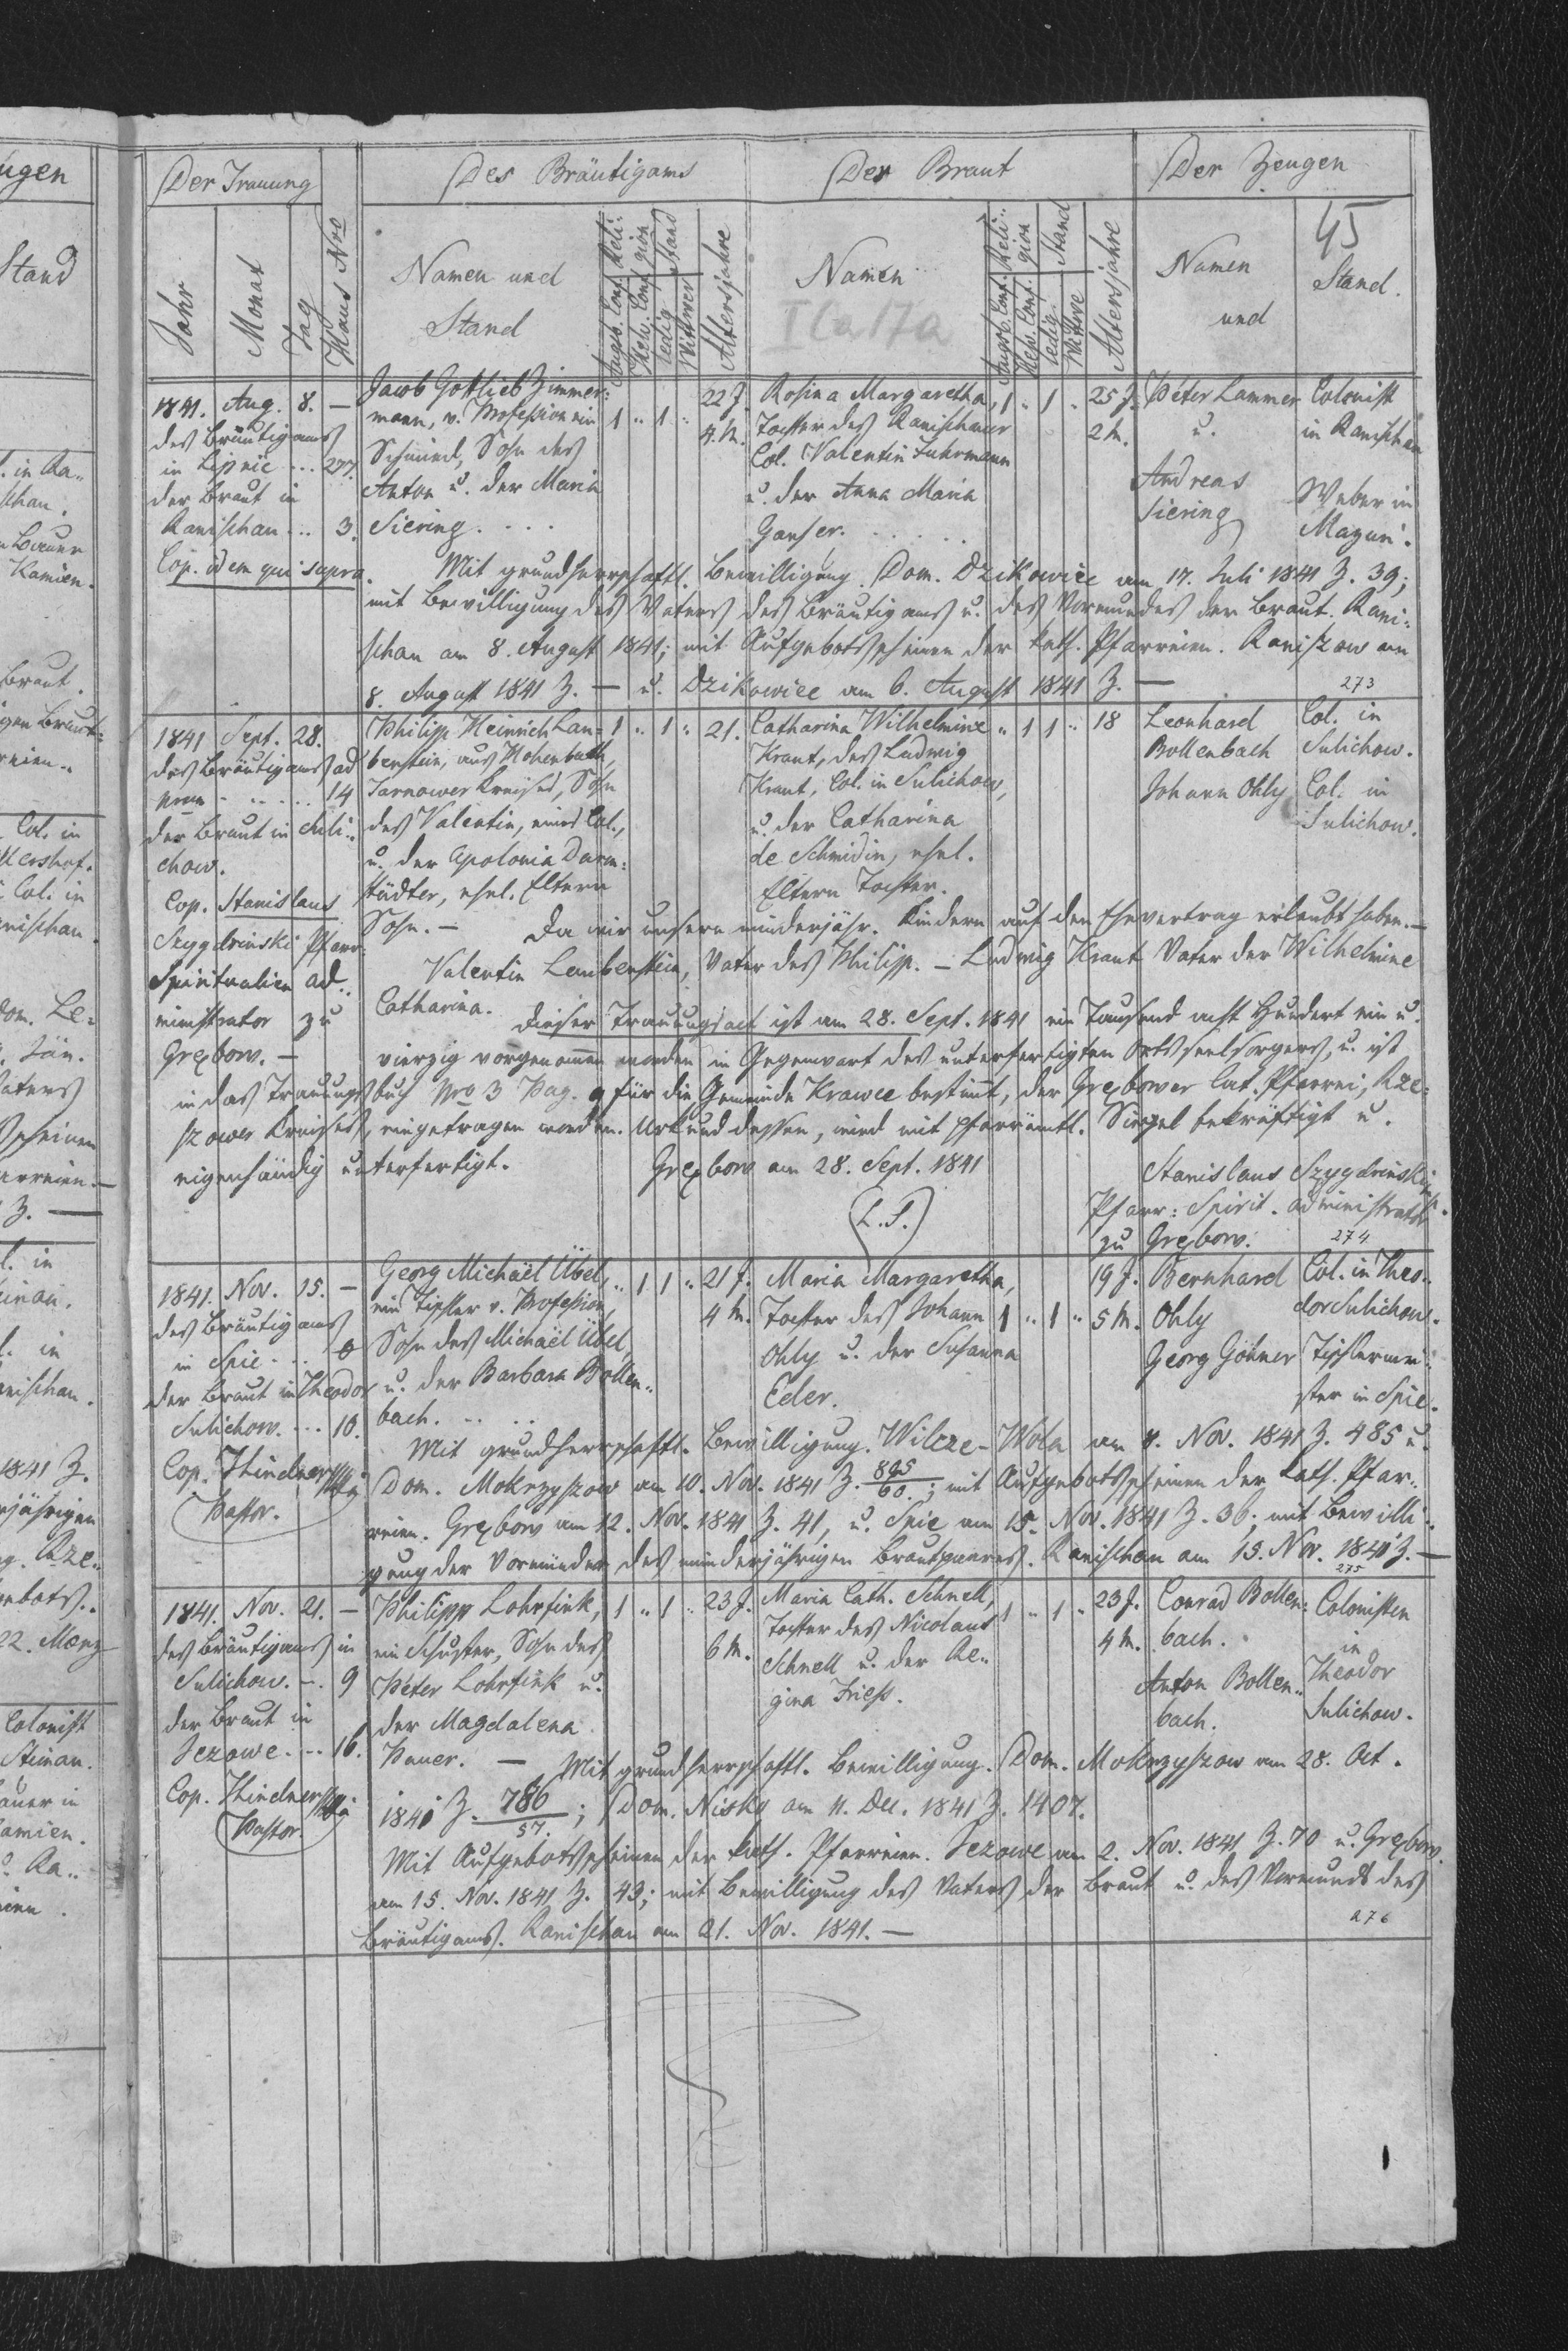 Der Trauung
Des Bräutigams
Der Braut
Der Zeugen
45
Jahr
Monat
Tag
Haus Nro
Namen und
Stand
Augsb. Conf.
Helv. Conf.
Reli-
gion
ledig
Wittwer
Stand
Altersjahre
Namen
Augsb. Conf.
Helv. Conf.
Reli-
gion
ledig
Wittwe
Stand
Altersjahre
Namen
und
Stand.
I Ca 17a
1841. Aug. 8. —
des Bräutigams
in Lipnic ... 277.
der Braut in
Ranischau ... 3.
Cop. idem qui supra.
Jacob Gottlieb Zimmer-
mann, v. Profession ein
Schmied, Sohn des
Anton u. der Maria
Siering. . . .
1 " 1 "
22 J.
4. M.
Rosina Margaretha,
Tochter des Ranischauer
Col. Valentin Fuhrmann
u. der Anna Maria
Ganser. . . . . .
1 " 1 "
25 J.
2 M.
Peter Lammer
u.
Andreas
Siering
Colonist
in Ranischau
Weber in
Mazuri.
Mit grundherrschaftl. Bewilligung. Dom. Dzikowiec am 17. Juli 1841 Z. 39;
mit Bewilligung des Vaters des Bräutigams u. des Vormundes der Braut. Rani-
schau am 8. August 1841; mit Aufgebotsscheinen der kath. Pfarreien. Raniszow am
8. August 1841 Z. — u. Dzikowiec am 6. August 1841 Z. —
273
1841 Sept. 28.
des Bräutigams ad
14
der Braut in Suli-
chow.
Cop. Stanislaus
Szygdrinski Pfarr-
Spiritualien ad-
ministrator zu
Grębow. —
Philipp Heinrich Lau-
benstein, aus Hohenbach,
Tarnower Kreises, Sohn
des Valentin, eines Col.,
u. der Apolonia Darm-
städter, ehel. Eltern
Sohn. —
1 " 1 " 21.
Catharina Wilhelmine
Kraut, des Ludwig
Kraut, Col. in Sulichow,
u. der Catharina
de Schmidin, ehel.
Eltern Tochter.
" 1 1 " 18
Leonhard
Bollenbach
Johann Ohly
Col. in
Sulichow.
Col. in
Sulichow.
Da wir unsern minderjähr. Kindern auf den Ehevertrag erlaubt haben. —
Valentin Laubenstein, Vater des Philipp. — Ludwig Kraut Vater der Wilhelmine
Catharina.
Dieser Trauungsact ist am 28. Sept. 1841 ein Tausend acht Hundert ein u.
vierzig vorgenommen worden in Gegenwart des unterfertigten Ortsseelsorgers, u. ist
in das Trauungsbuch Nro 3 Pag. 9 für die Gemeinde Krawce bestimmt, der Grębower lat. Pfarrei, Rze-
szower Kreises, eingetragen worden. Urkund dessen, wird mit pfarrämtl. Siegel bekräftigt u.
eigenhändig unterfertigt.
Grębow am 28. Sept. 1841
(L.S.)
Stanislaus Szygdrinski
Pfarr: Spirit. administrator
zu Grębow.
274
1841. Nov. 15. —
des Bräutigams
in Spie . . . 0
der Braut in Theodor
Sulichow. ... 10.
Cop. Thindner
Pastor.
Georg Michaël Übel,
ein Tischler v. Profession,
Sohn des Michaël Übel,
u. der Barbara Bollen-
bach. . . . .
" 1 1 "
21 J.
4 M.
Maria Margaretha,
Tochter des Johann
Ohly u. der Susanna
Eder.
1 " 1 "
19 J.
5 M.
Bernhard
Ohly
Georg Göhner
Col. in Theo-
dorsulichow.
Tischlermei-
ster in Spie.
Mit grundherrschaftl. Bewilligung. Wilcze-Wola am 4. Nov. 1841 Z. 485 u.
Dom. Mokrzyszow am 10. Nov. 1841 Z. 825/60.; mit Aufgebotsscheinen der kath. Pfar-
reien. Grębow am 12. Nov. 1841 Z. 41, u. Spie am 15. Nov. 1841 Z. 36; mit Bewilli-
gung der Vormünder des minderjährigen Brautpaares. Ranischau am 15. Nov. 1841 Z. —
275
1841. Nov. 21. —
des Bräutigams in
Sulichow. — . 9
der Braut in
Jezowe. ... 16.
Cop. Thindner
Pastor
Philipp Lohrfink,
ein Schuster, Sohn des
Peter Lohrfink u.
der Magdalena
Hauer. —
1 " 1 "
23 J.
6 M.
Maria Cath. Schnell,
Tochter des Nicolaus
Schnell u. der Re-
gina Friess.
1 " 1 "
23 J.
4 M.
Conrad Bollen-
bach.
Anton Bollen-
bach.
Colonisten
in
Theodor
Sulichow.
Mit grundherrschaftl. Bewilligung. Dom. Mokrzyszow am 28. Oct.
1841 Z. 786/57.; Dom. Nisko am 11. Dec. 1841 Z. 1407.
Mit Aufgebotsscheinen der kath. Pfarreien. Jezowe am 2. Nov. 1841 Z. 70 u. Grębow
am 15. Nov. 1841 Z. 43; mit Bewilligung des Vaters der Braut u. des Vormunds des
Bräutigams. Ranischau am 21. Nov. 1841. —
276